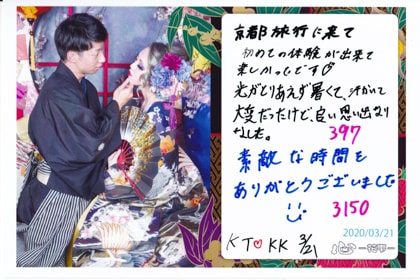 京都旅行に来て
初めての体験が出来て
楽しかったです♡
光がとりあえず暑くて、汗かいて
大変だったけど、良い思い出なり
ました。
397
素敵な時間を
ありがとうございました
3150
2020/03/21
KT♡KK 3/21
心 -花雫-